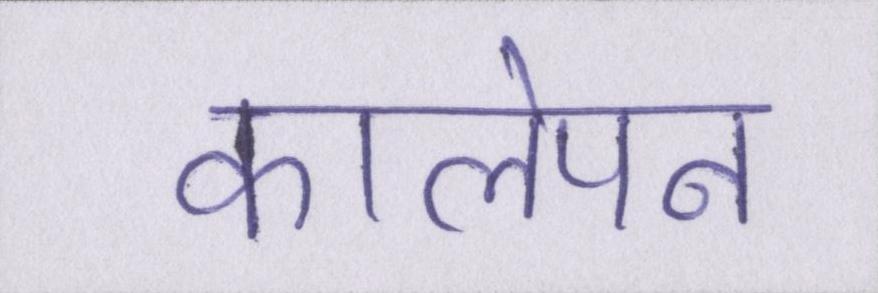 कालेपन